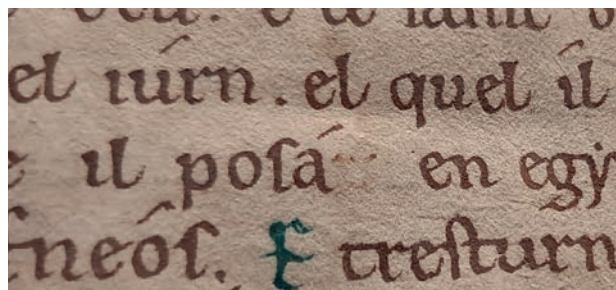 el iúrn. el quel il
il posá en egy
neós. E tresturn